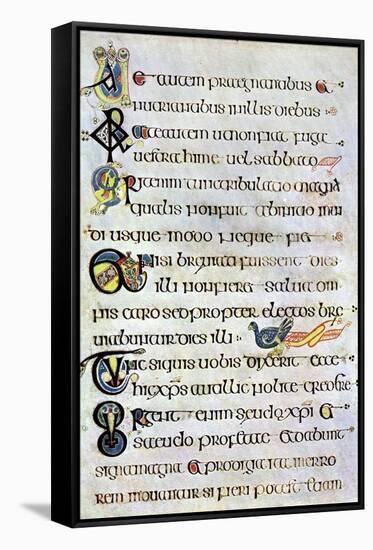 Uae autem praegnantibus &
nutrientibus in illis diebus
Orate autem ut non fiat fuga
uestra hieme uel sabbato
Erit enim tunc tribulatio magna
qualis non fuit ab initio mun
di usque modo neque fiet
Et nisi breuiati fuissent dies
illi non fieret salua om
nis caro sed propter electos bre
uiabuntur dies illi
Tunc si quis uobis dixerit ecce
hic xps aut illic nolite credere
Surgent enim seudo xpi &
saeudo profetae & dabunt
signa magna & prodigia ita ut in erro
rem moueantur si fieri potest etiam